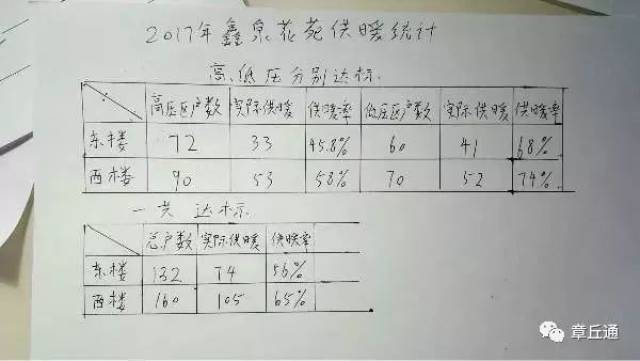 2017年鑫泉花苑供暖统计
高、低压分别达标.
高压区户数 实际供暖 供暖率 低压区户数 实际供暖 供暖率
东楼 72 33 45.8% 60 41 68%
西楼 90 53 58% 70 52 74%
一共 达标
总户数 实际供暖 供暖率
东楼 132 74 56%
西楼 160 105 65%
章丘通